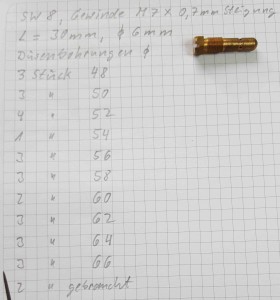 SW 8, Gewinde M7 x 0,7mm Steigung
L = 30mm, ϕ 6mm
Düsenbohrungen ϕ
3 Stück 48
3 " 50
4 " 52
1 " 54
3 " 56
3 " 58
2 " 60
3 " 62
3 " 64
3 " 66
2 " gebraucht